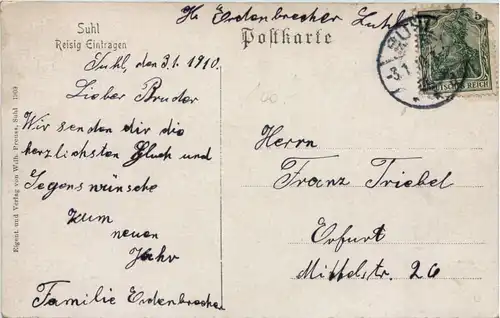 Suhl
Reisig Eintragen
Suhl, den 3.1.1910.
Lieber Bruder
Wir senden dir die
herzlichsten Gluck und
Segens wünsche
zum
neuen
Jahr
Familie Erdenbrecher
Eigent. und Verlag von Wilh. Preuss, Suhl 1909
H. Erdenbrecher Suhl
Postkarte
SUHL
3.1.10
5
DEUTSCHES REICH
Herrn
Franz Triebel
Erfurt
Mittelstr. 26